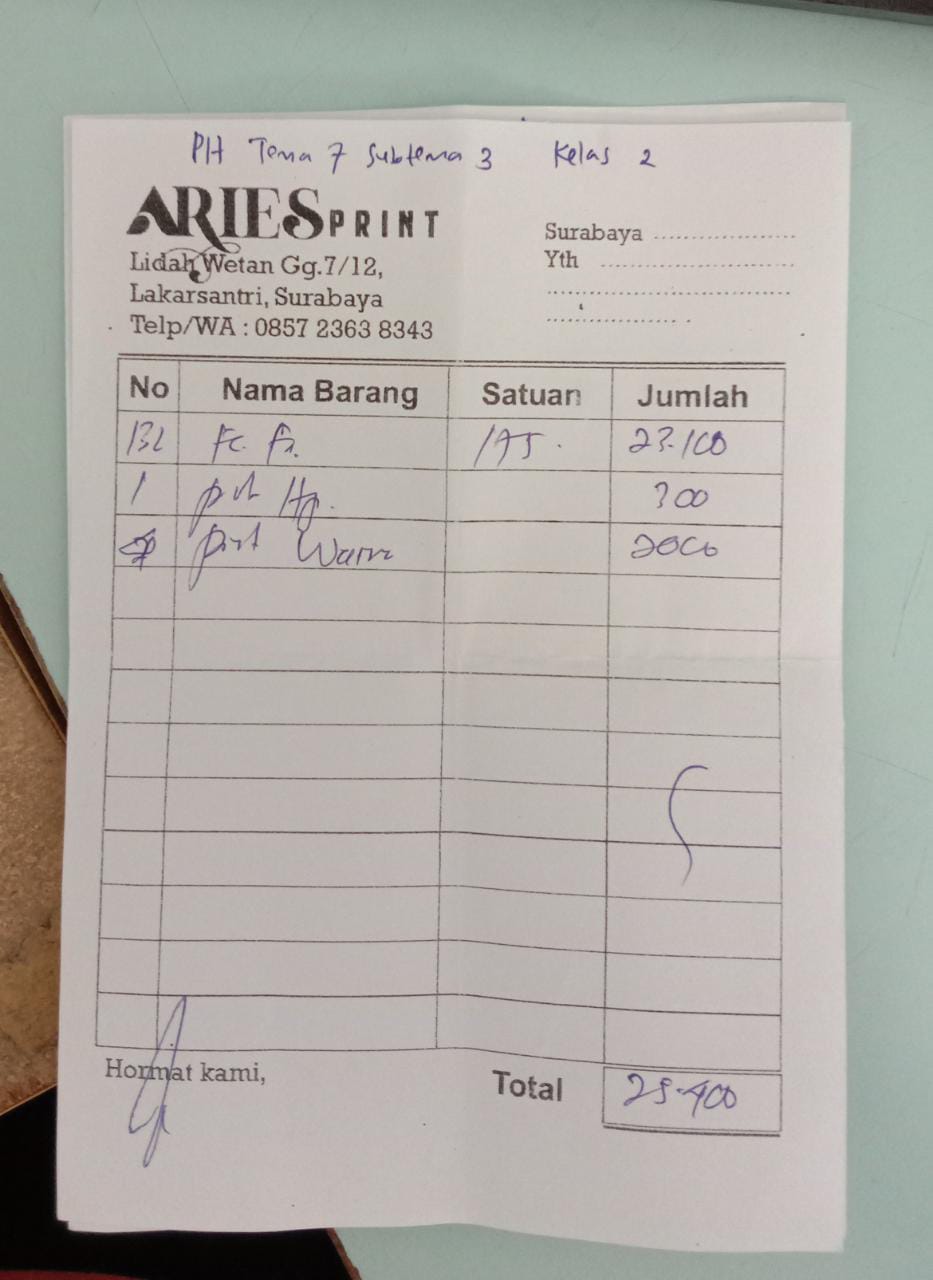 PH Tema 7 Subtema 3 Kelas 2
ARIES PRINT
Lidah Wetan Gg.7/12,
Lakarsantri, Surabaya
Telp/WA : 0857 2363 8343
Surabaya ....................
Yth ...........................
No Nama Barang Satuan Jumlah
132 Fc. 175. 23.100
1 Hp. 300
print Warna 2000
Hormat kami,
Total 25.400